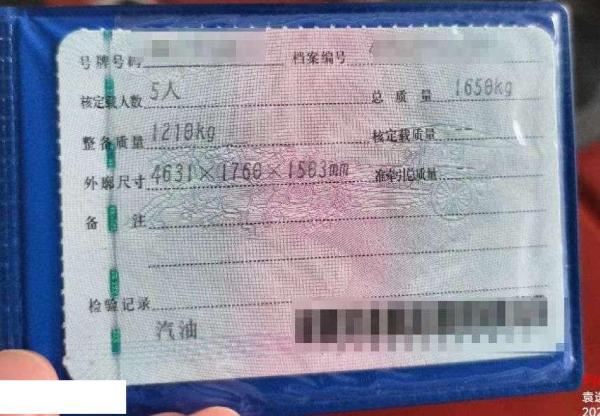 号牌号码 档案编号
核定载人数 5人 总质量 1650kg
整备质量 1210kg 核定载质量 --
外廓尺寸 4631×1760×1503mm 准牵引总质量 --
备注
检验记录
汽油